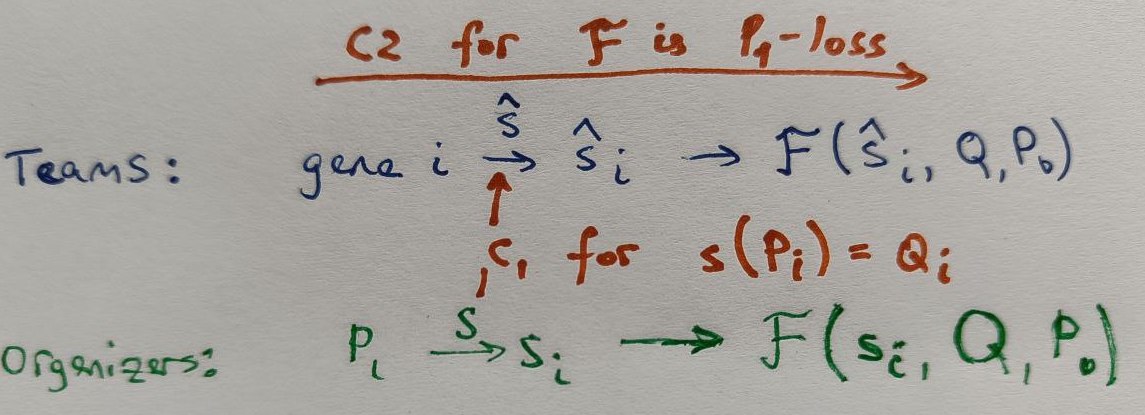 C2 for F is P₁-loss
Teams: gene i →^ŝ ŝᵢ → F(ŝᵢ, Q, P₀)
C₁ for s(Pᵢ) = Qᵢ
Organizers: Pᵢ →^S Sᵢ → F(sᵢ, Q, P₀)